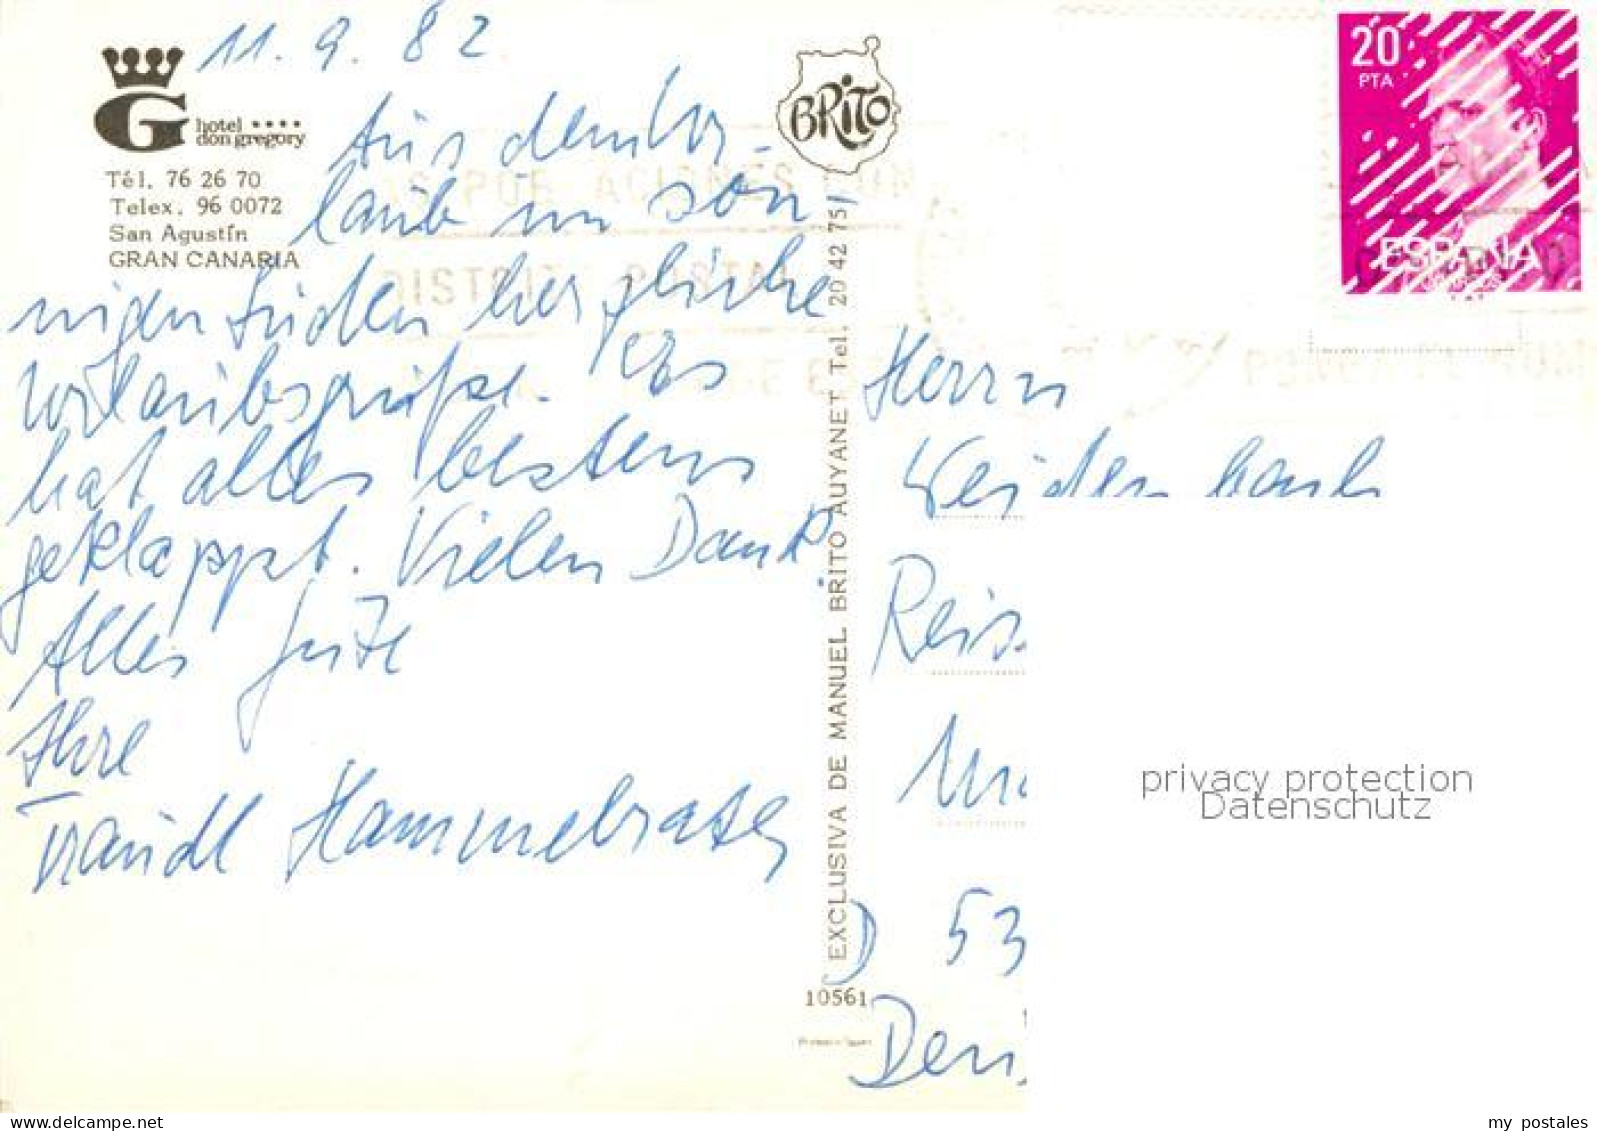 11. 9. 82
hotel ****
don gregory
Tél. 76 26 70
Telex. 96 0072
San Agustín
GRAN CANARIA
BRITO
Aus dem Ur-
laub im son-
nigen Süden herzliche
Urlaubsgrüße. Es
hat alles bestens
geklappt. Vielen Dank
Alles Gute
Ihre
Traudl
EXCLUSIVA DE MANUEL BRITO AUYANET Tel. 20 42 75
10561
20
PTA
ESPAÑA
Herrn
Weidenbach
Reis
D 53
privacy protection
Datenschutz
my postales